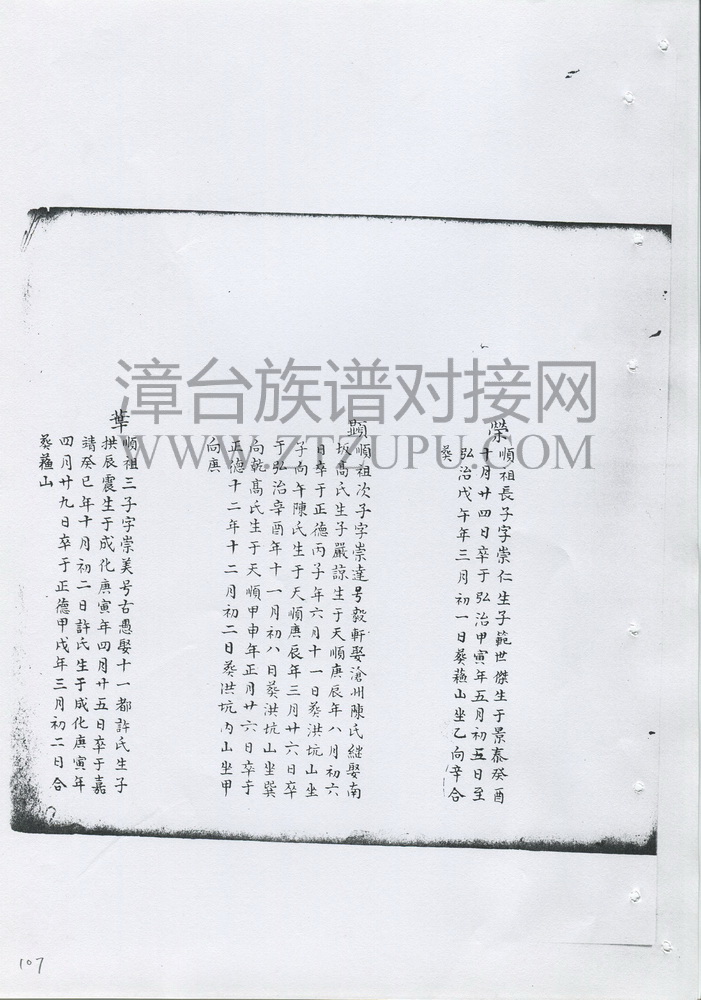 榮順祖長子字崇仁生子範世傑生于景泰癸酉
十月廿四日卒于弘治甲寅年五月初五日至
弘治戊午年三月初一日葵蘓山坐乙向辛合
葵
顯順祖次子字崇達号毅軒娶滄州陳氏繼娶南
坂髙氏生子嚴諒生于天順庚辰年八月初六
日卒于正德丙子年六月十一日葵洪坑山坐
子向午陳氏生于天順庚辰年三月廿六日卒
于弘治辛酉年十一月初八日葵洪坑山坐巽
向乾髙氏生于天順甲申年正月廿六日卒于
正德十二年十二月初二日葵洪坑內山坐甲
向庚
華順祖三子字崇美号古愚娶十一都許氏生子
拱辰震生于成化庚寅年四月廿五日卒于嘉
靖癸巳年十月初二日許氏生于成化庚寅年
四月廿九日卒于正德甲戌年三月初二日合
葵蘓山
漳台族谱对接网
WWW.ZTZUPU.COM
107